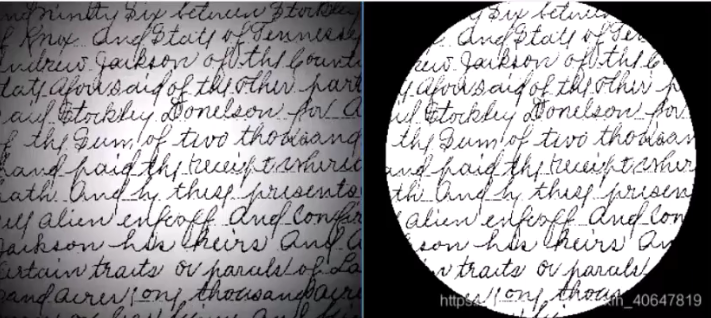 and ninety Six between Stockley
of Knox And State of Tennessee
Andrew Jackson of the County
State aforesaid of the other part
said Stockley Donelson for A
of the Sum of two thousand
hand paid the receipt where
hath And by these presents
alien enfeoff And Confir
Jackson his heirs And A
certain traits or parcels of La
sand acres one thousand acre
Six between
And State of Tenn
Jackson of the
aforesaid of the other
Stockley Donelson for
the Sum of two thousan
and paid the receipt wher
And by these presen
alien enfeoff And Con
son his heirs An
traits or parcels
one thous
https
n_40647819